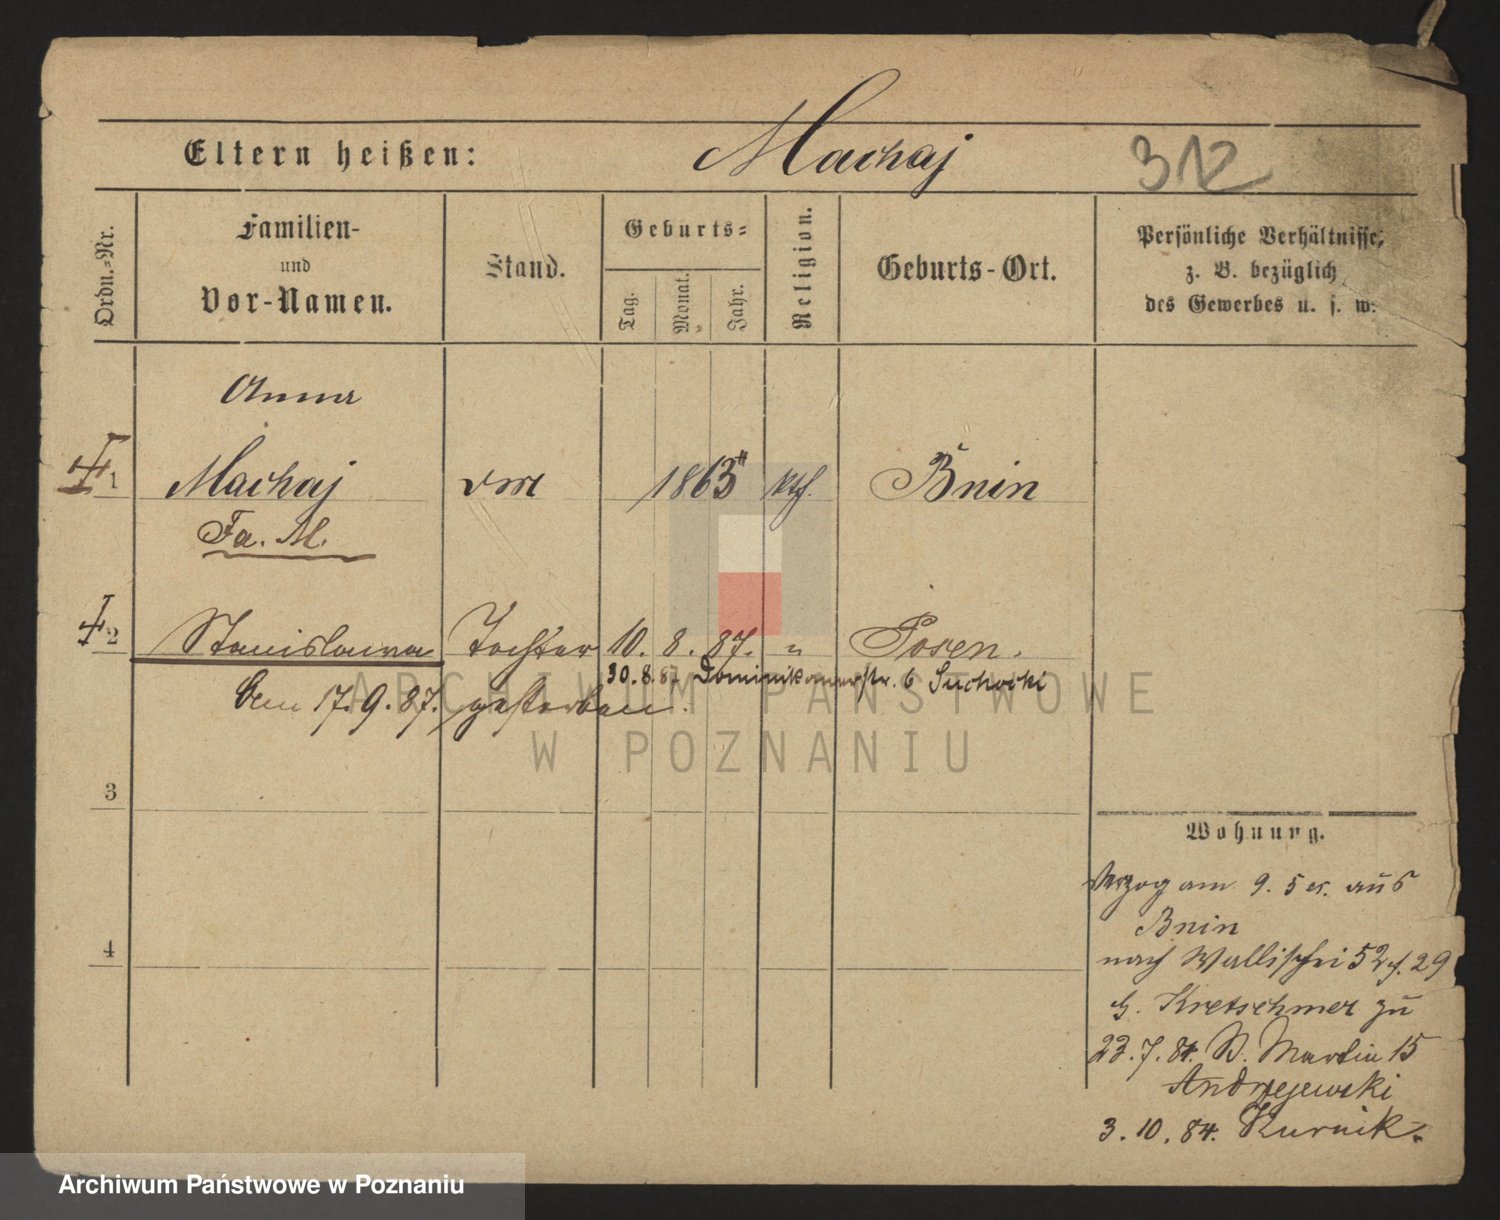 Eltern heißen: Machaj 312
Ordn.-Nr.
Familien-
und
Vor-Namen.
Stand.
Geburts-
Tag.
Monat.
Jahr.
Religion.
Geburts-Ort.
Persönliche Verhältnisse,
z. B. bezüglich
des Gewerbes u. s. w.
Anna
1 Machaj 1863 kth. Bnin
Fa. M.
2 Stanislawa Tochter 10. 8. 87. " Posen.
30. 8. 87 Dominikanerstr. 6 Suchocki
Den 17. 9. 87. gestorben.
3
4
Wohnung.
am 9. 5 cr. aus
Bnin
nach Wallischei 52 29
Kretschmer zu
23. 7. 84. St. Martin 15
Andrzejewski
3. 10. 84. Kurnik.
ARCHIWUM PAŃSTWOWE
W POZNANIU
Archiwum Państwowe w Poznaniu